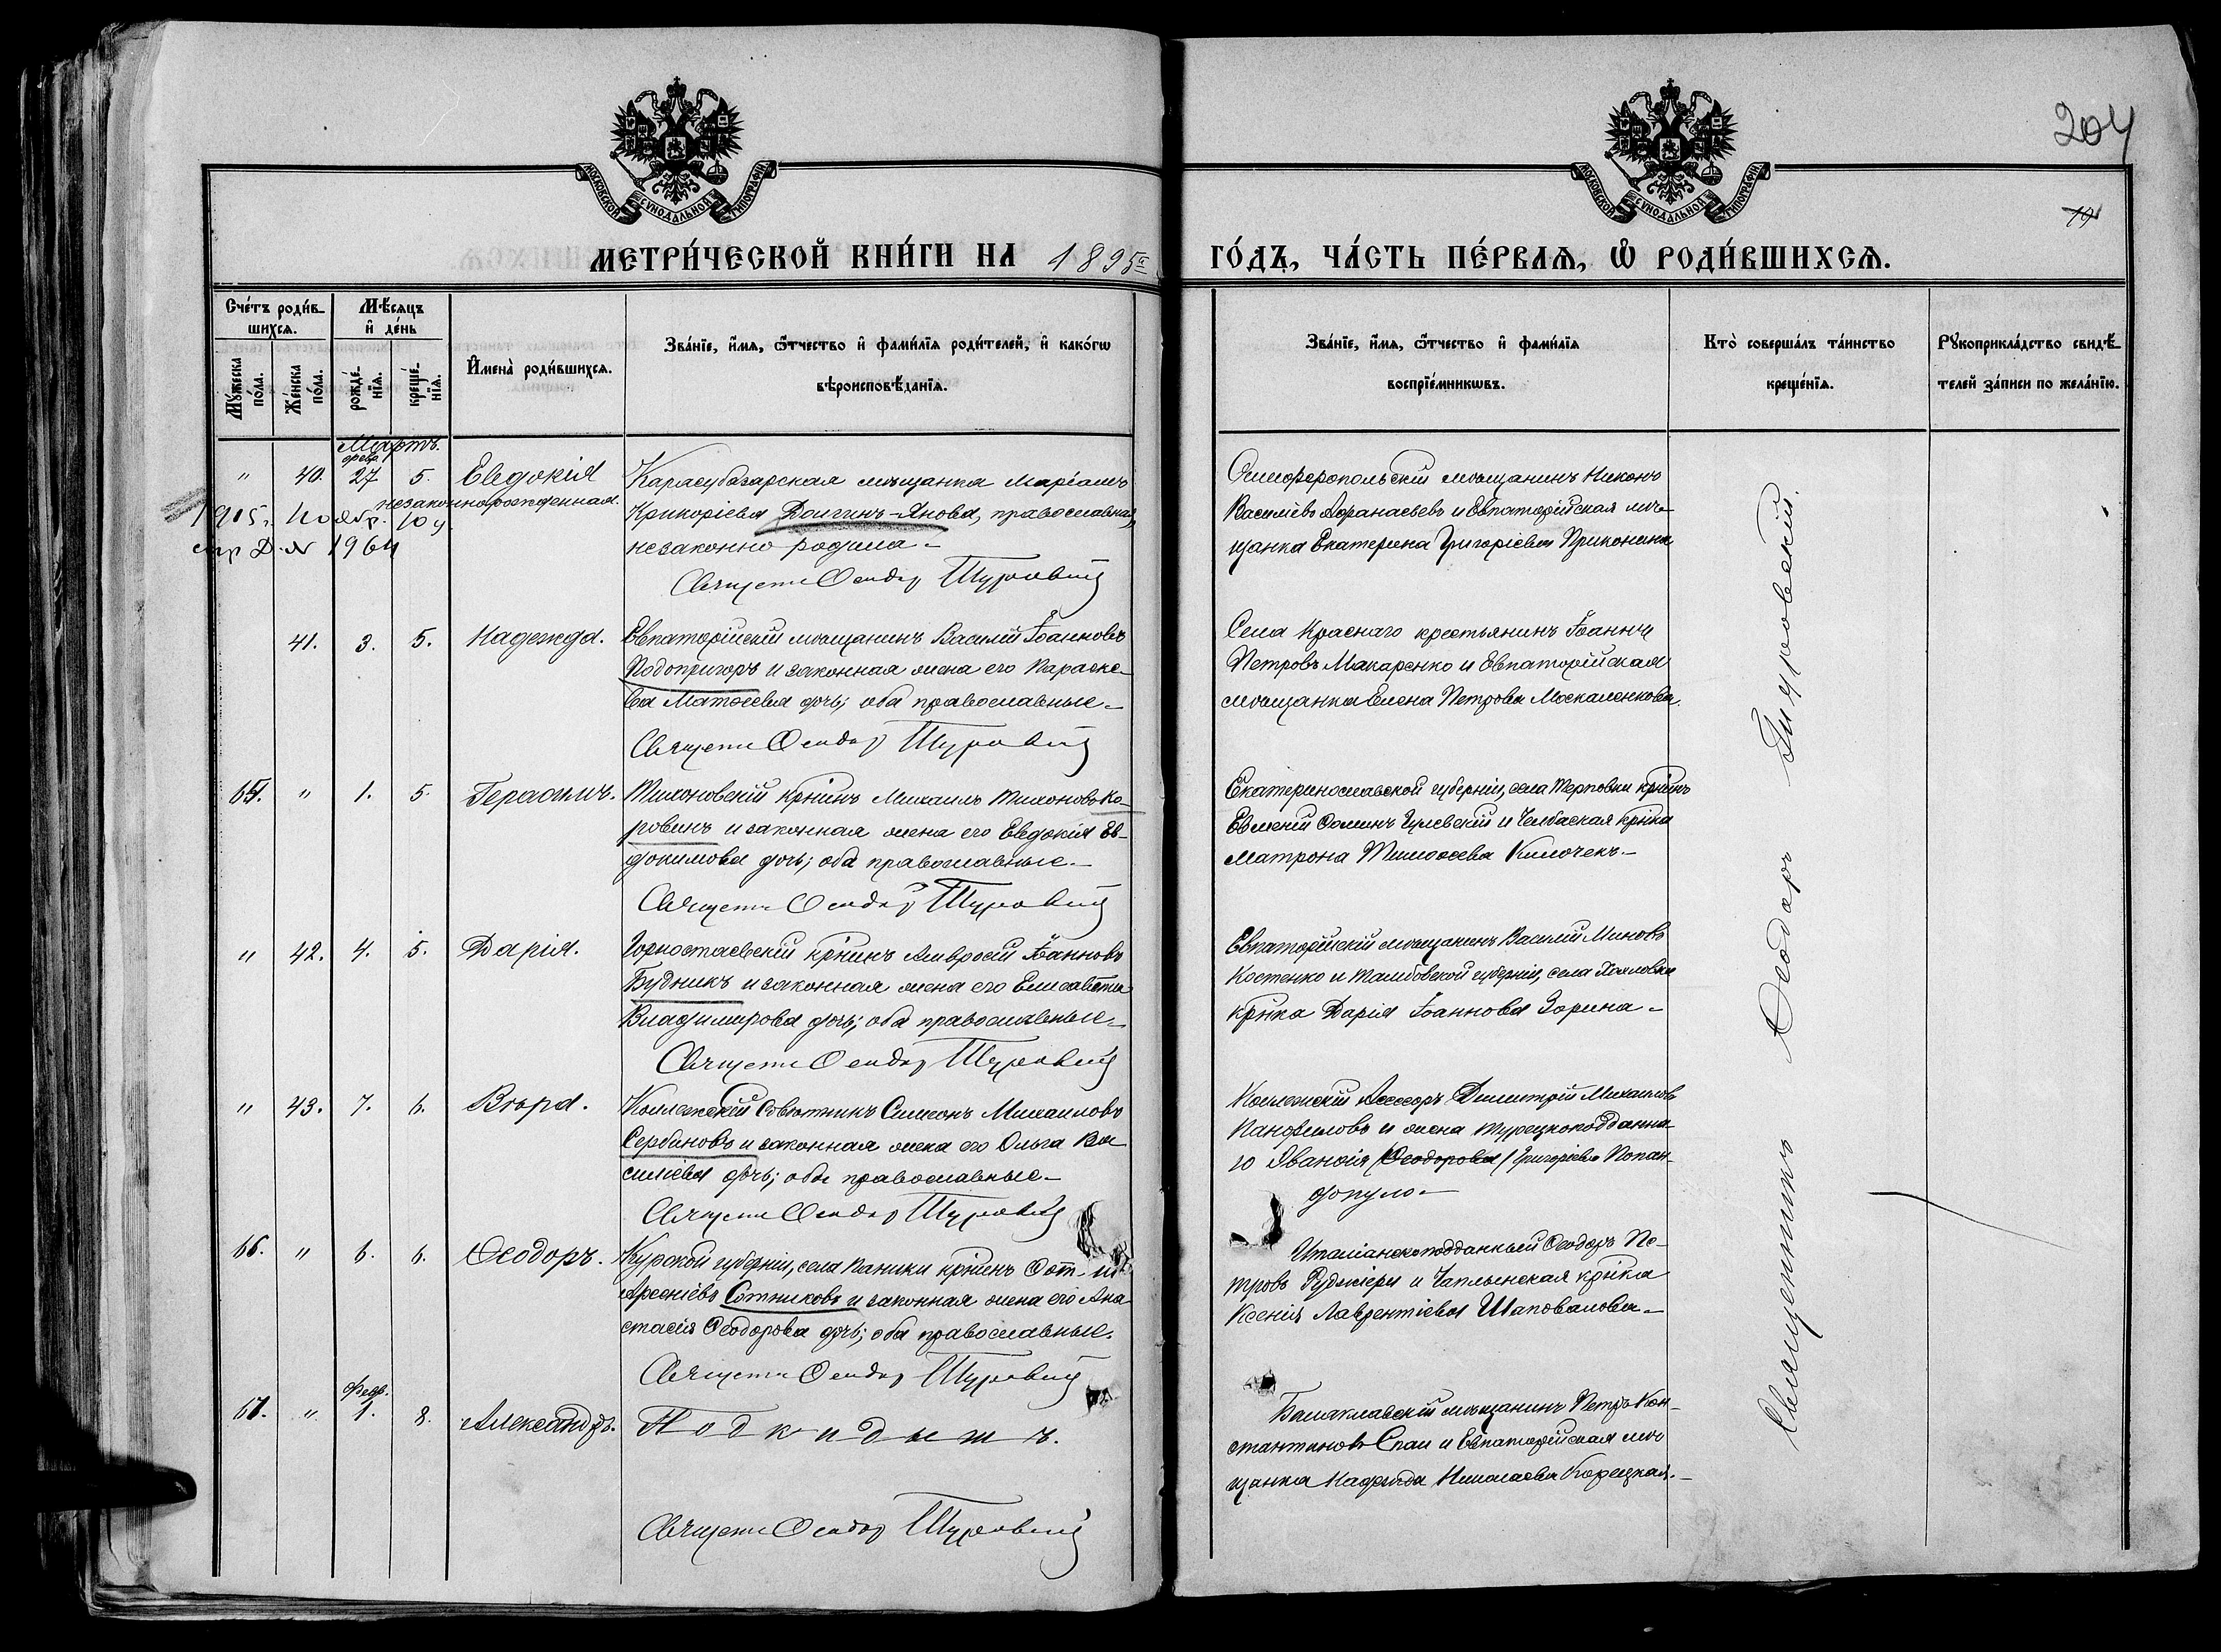 204
МОСКОВСКОЙ СѴНОДАЛЬНОЙ ТИПОГРАФІИ
МОСКОВСКОЙ СѴНОДАЛЬНОЙ ТИПОГРАФІИ
МЕТРИ́ЧЕСКОЙ КНИ́ГИ НА 1895 ГО́ДЪ, ЧА́СТЬ ПЕ́РВАѦ, Ѽ РОДИ́ВШИХСѦ.
Сче́тъ роди́вшихсѧ.
Мꙋ́жеска по́ла.
Же́нска по́ла.
Мѣ́сѧцъ и҆ де́нь
рожде́нїѧ.
креще́нїѧ.
И҆мена̀ роди́вшихсѧ.
Зва́нїе, и҆́мѧ, ѻ҆́тчество и҆ фами́лїѧ роди́телей, и҆ како́гѡ
вѣроисповѣ́данїѧ.
Зва́нїе, и҆́мѧ, ѻ҆́тчество и҆ фами́лїѧ
воспрїе́мникѡвъ.
Кто̀ соверша́лъ та́инство
креще́нїѧ.
Рꙋкоприкла́дство свидѣ́телей за́писи по жела́нїю.
Мартъ.
февр.
" 40. 27 5. Евдокія
незаконнорожденная.
1915 г. Ноябр. 10 ч.
Д. № 1964
Карасубазарская мѣщанка Маріамъ
Крикоріева Долгинъ-Янова, православная,
незаконно родила -
Священн Ѳеодор Туровскій
Симферопольскій мѣщанинъ Никонъ
Василіевъ Аѳанасьевъ и Евпаторійская мѣ-
щанка Екатерина Григоріева Приконина
41. 3. 5. Надежда.
Евпаторійскій мѣщанинъ Василій Іоанновъ
Подопригоръ и законная жена его Параске-
ва Матѳіева дочь; оба православные -
Священн Ѳеодор Туровскій
Села Краснаго крестьянинъ Іоаннъ
Петровъ Макаренко и Евпаторійская
мѣщанка Елена Петрова Москаленкова.
65. " 1. 5. Герасимъ.
Тихоновскій кр-нинъ Михаилъ Тихоновъ Ко-
ровинъ и законная жена его Евдокія Ев-
докимова дочь; оба православные. -
Священн Ѳеодор Туровскій
Екатеринославской губерніи, села Терповки кр-нинъ
Евменій Ѳоминъ Гулевскій и Челбаская кр-нка
Матрона Тимоѳеева Килочекъ. -
" 42. 4. 5. Дарія.
Горностаевскій кр-нинъ Амвросій Іоанновъ
Будникъ и законная жена его Елисавета
Владимирова дочь; оба православные -
Священн Ѳеодор Туровскій
Евпаторійскій мѣщанинъ Василій Миновъ
Костенко и Тамбовской губерніи, села
кр-нка Дарія Іоаннова Зорина -
" 43. 7. 6. Вѣра.
Коллежскій Совѣтникъ Симеонъ Михаиловъ
Сербиновъ и законная жена его Ольга Ва
силіева дочь; оба православные -
Священн Ѳеодор Туровскій
Коллежскій Асессоръ Димитрій Михаиловъ
Панфиловъ и жена турецкоподданна
го Іванѳія (Ѳеодорова) Григоріева Попан-
допуло. -
66. " 6. 6. Ѳеодоръ.
Курской губерніи, села Паники кр-нинъ Фотій
Арсеніевъ Сотниковъ и законная жена его Ана
стасія Ѳеодорова дочь; оба православные.
Священн Ѳеодор Туровскій
Италіанскоподданный Ѳеодоръ Пе-
тровъ Руджіери и Чаплынская кр-нка
Ксенія Лаврентіева Шаповалова -
Февр.
67. " 1. 8. Александръ.
Подкидышъ.
Священн Ѳеодор Туровскій
Балаклавскій мѣщанинъ Петръ Кон-
стантиновъ Спаи и Евпаторійская мѣ
щанка Надежда Николаева Корецкая. -
Священникъ Ѳеодоръ Туровскій.